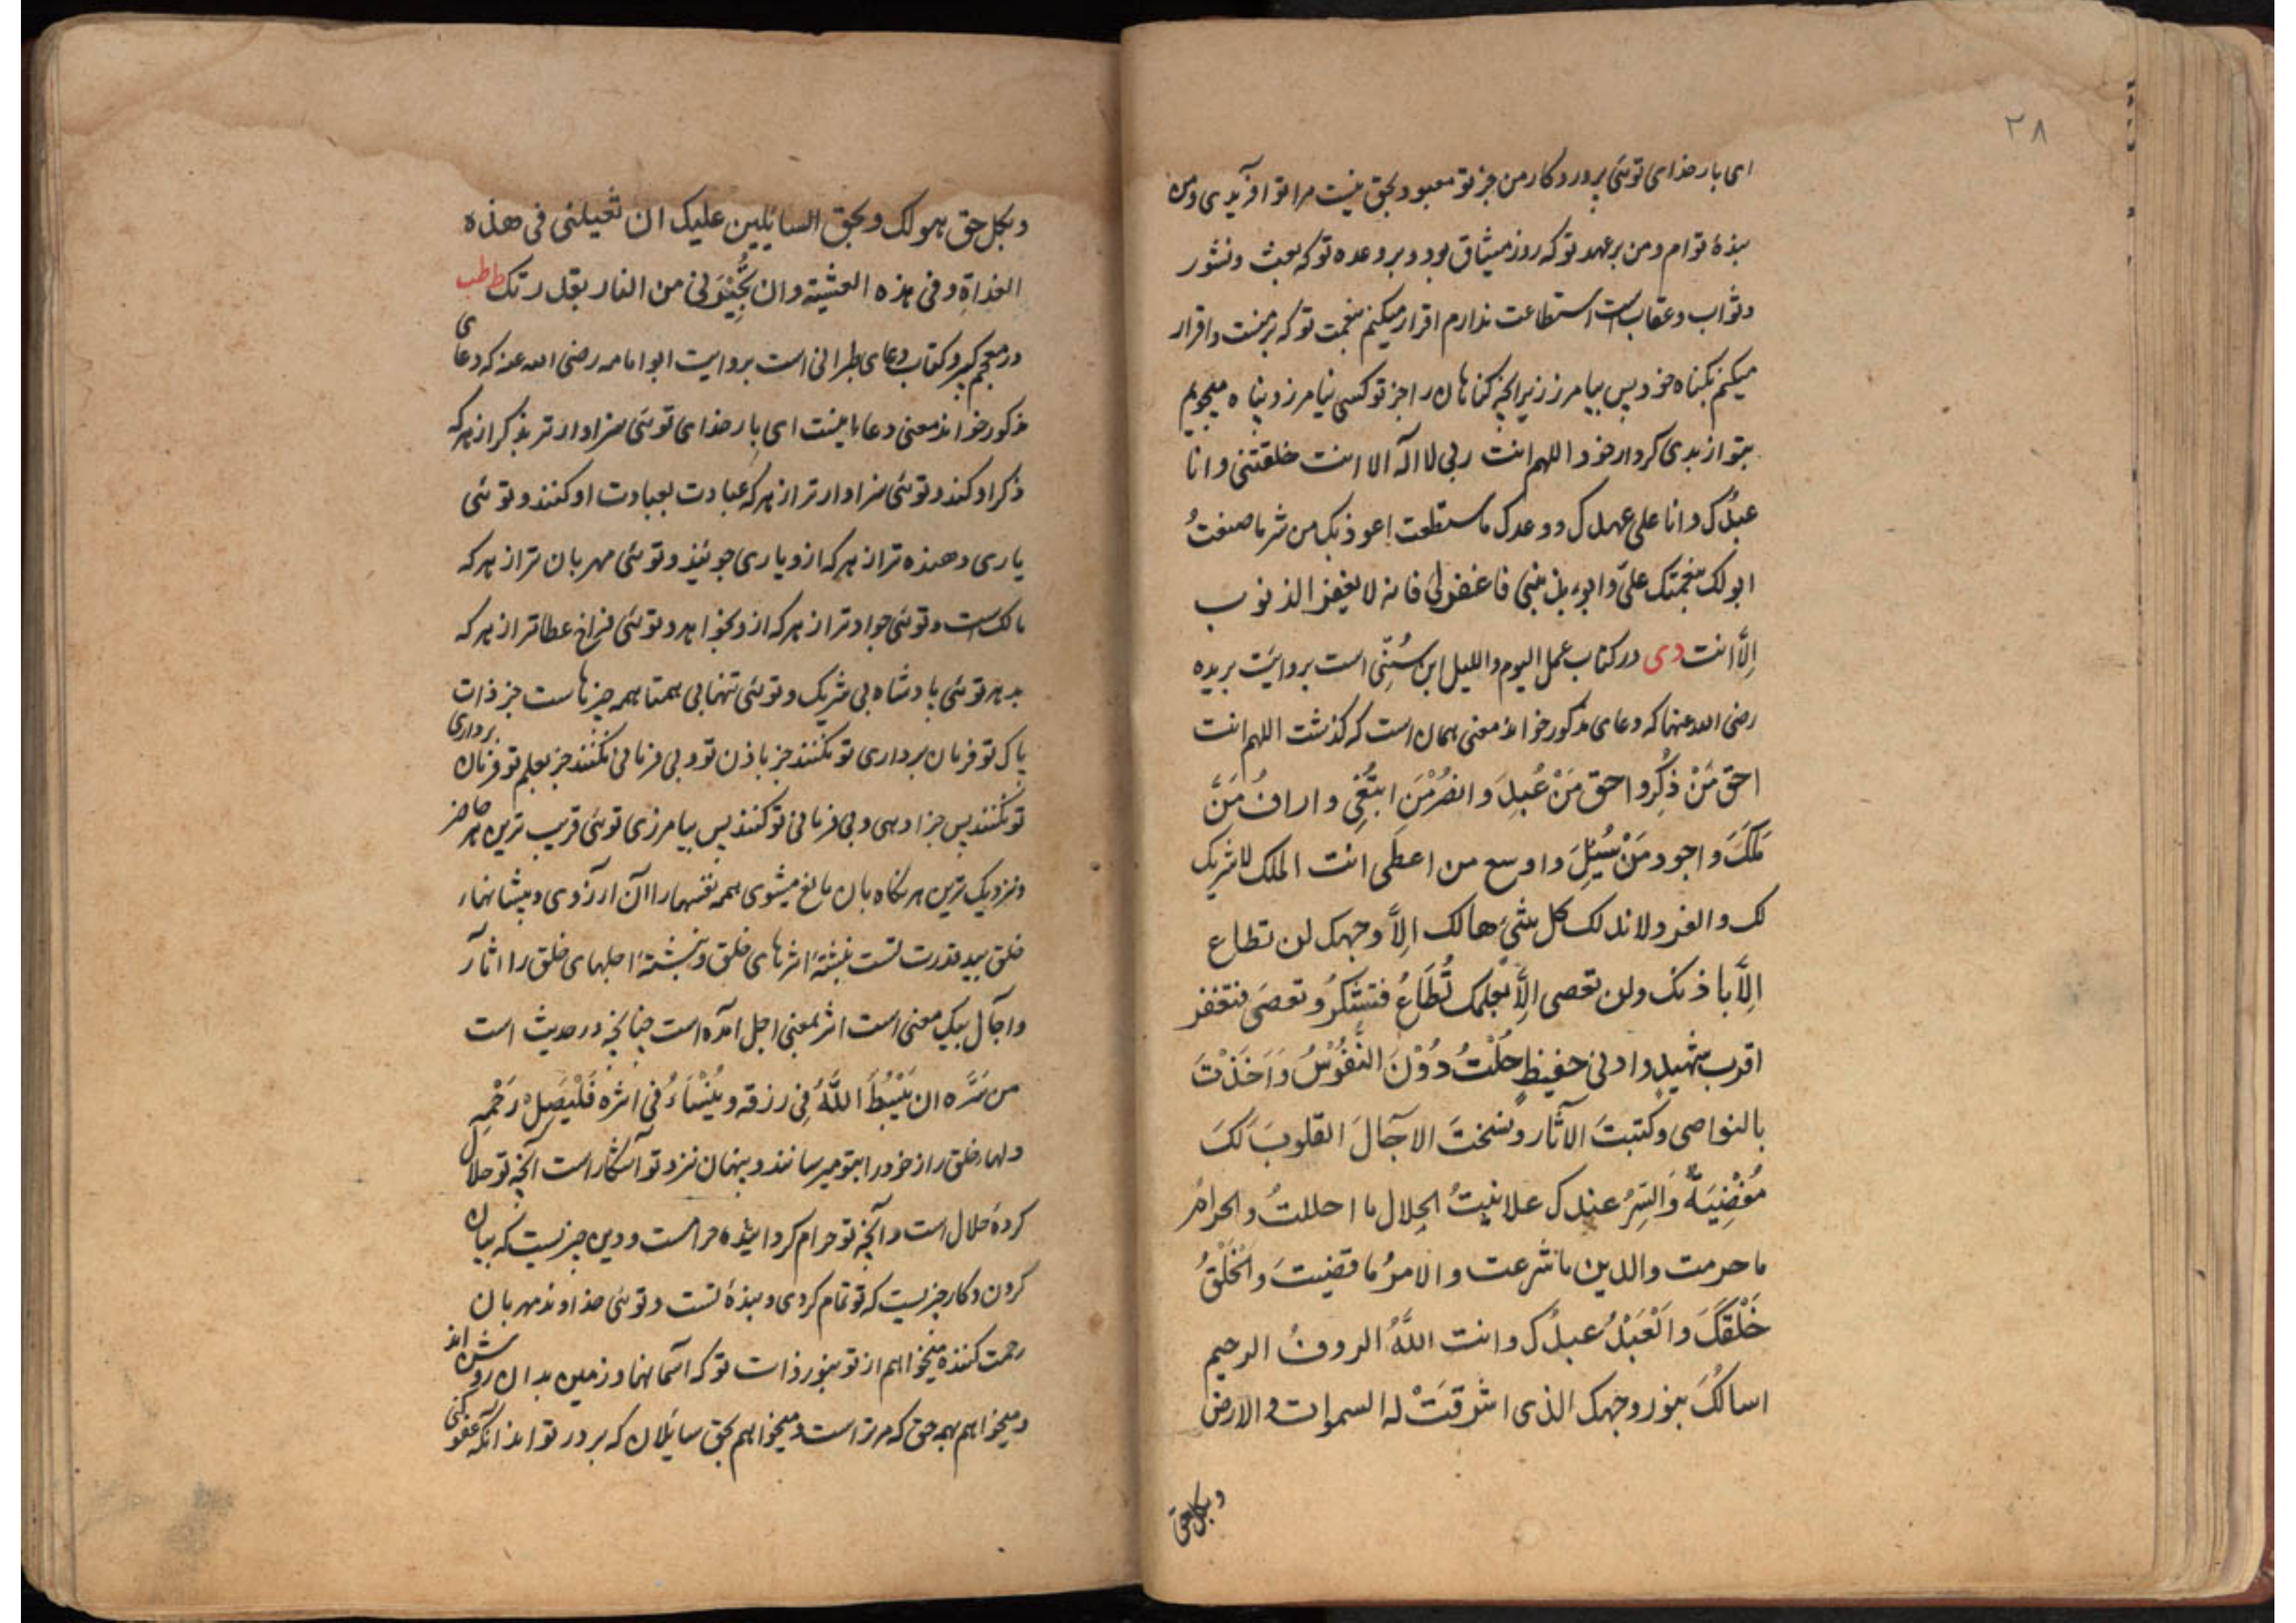 ۲۸
ای بار خدای توئی پروردکار من جز تو معبود بحق نیست مرا تو افریدی و من
بندهٔ توام و من بر عهد تو که روز میثاق بود و بر وعده تو که بعث و نشور
و ثواب و عقاب است استطاعت ندارم اقرار میکنم بنعمت تو که بر منست و اقرار
میکنم بکناه خود پس بیامرز زیرا کناهان را جز تو کسی نیامرزد و پناه میجویم
بتو از بدی کردار خود اللهم انت ربی لا اله الا انت خلقتنی و انا
عبدُک و انا علی عهدک و وعدک ما استطعت اعوذ بک من شر ما صنعتُ
ابو لک بنعمتک علیّ و ابوء بذنبی فاغفرلی فانه لا یغفر الذنوب
اِلّا انت دی در کتاب عمل الیوم واللیل ابن سُنّی است بروایَت بریده
رضی الله عنها که دعای مذکور خواند معنی همان است که کذشت اللهم انت
احق مَنْ ذُکِر و احق مَنْ عُبِدَ و انصُرْ مَنِ ابتُغِی و اراف مَنْ
مَلَکَ و اجود مَنْ سُئِلَ و اوسع من اعطَی انت الملک لا شریک
لک و الفرد لا ند لک کل شیٔ هالک اِلاَّ وجهک لن تطاع
اِلاَّ باذنک ولن تعصی اِلاَّ بعلمک تُطَاعُ فتشکرُ و تعصَی فتغفر
اقرب شهیدٍ و ادنی حفیظٍ حُلْتُ دُوْنَ النُّفُوْسُ وَاَخَذْتَ
بالنواصی و کتبتَ الاثار و نسختَ الآجالَ القلوبَ لَکَ
مُفْضِیَةٌ وَالسِّرُ عندک علانیتُ الحِلال ما احللتُ و الحرامُ
ما حرمت والدین ما شرعت و الامرُ ما قضیتَ وَالْخَلْقُ
خَلْقَکَ و العَبْدُ عبدُک و انت اللّهُ الروفُ الرحیم
اسالُکَ بنور وجهک الذی اشرقَتْ له السموات و الارض
و بکل حق
و بکل حق هو لک و بحق السایٔلین علیک ان تقیلنی فی هذه
الغداةِ و فی هذه العشیته و ان تُجِیْرَنی من النار بقدرتک ط طب
در معجم کبیر و کتاب دعای طبرانی است بروایت ابو امامه رضی الله عنه که دعای
مذکور خواند معنی دعا اینست ای بار خدای توئی سزاوارتر بذکر از هر که
ذکر او کنند و توئی سزاوارتر از هر که عبادت بعبادت او کنند و توئی
یاری دهنده تر از هر که ازو یاری جویند و توئی مهربان تر از هر که
مالکست و توئی جوادتر از هر که ازو بخواهند و توئی فراخ عطاتر از هر که
بدهد توئی پادشاه بی شریک و توئی تنها بی همتا همه چیزهاست جز ذات
پاک تو فرمان برداری تو نکنند جز باذن تو و بی فرمانی نکنند جز بعلم تو فرمان برداری
تو نکنند پس جزا دهی و بی فرمانی تو کنند پس بیامرزی توئی قریب ترین هر حاضر
و نزدیک ترین هر نکاه بان مانع میشوی همه نفسها را از آن آرزوی و پیشانیهاء
خلق بید قدرت تست نبشتهٔ اثرهای خلق و نبشتهٔ اجلهای خلق را اثار
و آجال بیک معنی است اثر بمعنی اجل امده است چنانچه در حدیث است
من سَرَّه ان یَبْسُطَ اللّهُ فِی رزقه و یُنْسَاءُ فی اثره فَلْیَصِلْ رَحْمِه
دلهاء خلق راز خود را بتو میرسانند و پنهان نزد تو آشکار است آنچه تو حلال
کردهٔ حلال است و آنچه تو حرام کردانیده حرامست و دین چیزیست که بیان
کردن و کار چیزیست که تو تمام کردی و بندهٔ تست و توئی خداوند مهربان
رحمت کننده میخواهم از تو بنور ذات تو که آسمانها و زمین بدان روشن اند
و میخواهم بهر حق که مر تراست و میخواهم بحق سایٔلان که بر در تو اند آنکه عفو کنی